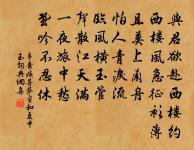 與君欲赴西樓約
西樓風急征衫薄
且莫上蘭舟
怕人清淚流
臨風橫玉管
聲散江天滿
一夜旅中愁
蛩吟不忍休
辛棄疾菩薩蠻和夏中
玉